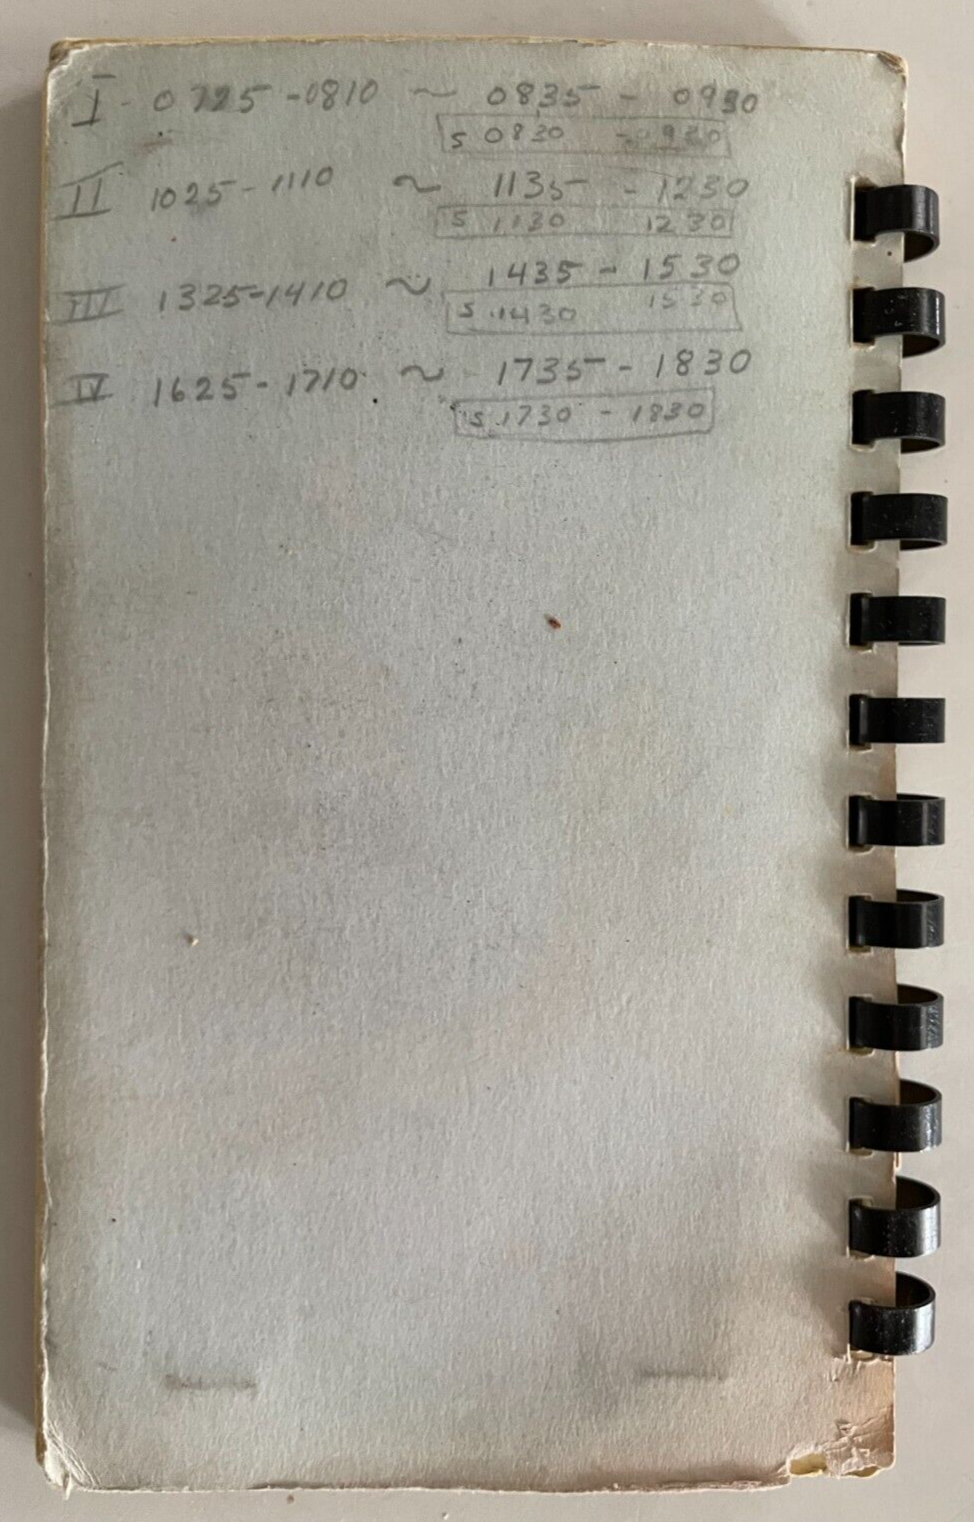 I - 0725-0810 ~ 0835 - 0930
S 0830 - 0930
II 1025-1110 ~ 1135 - 1230
S 1130 1230
III 1325-1410 ~ 1435 - 1530
S 1430 1530
IV 1625-1710 ~ 1735 - 1830
S 1730 - 1830